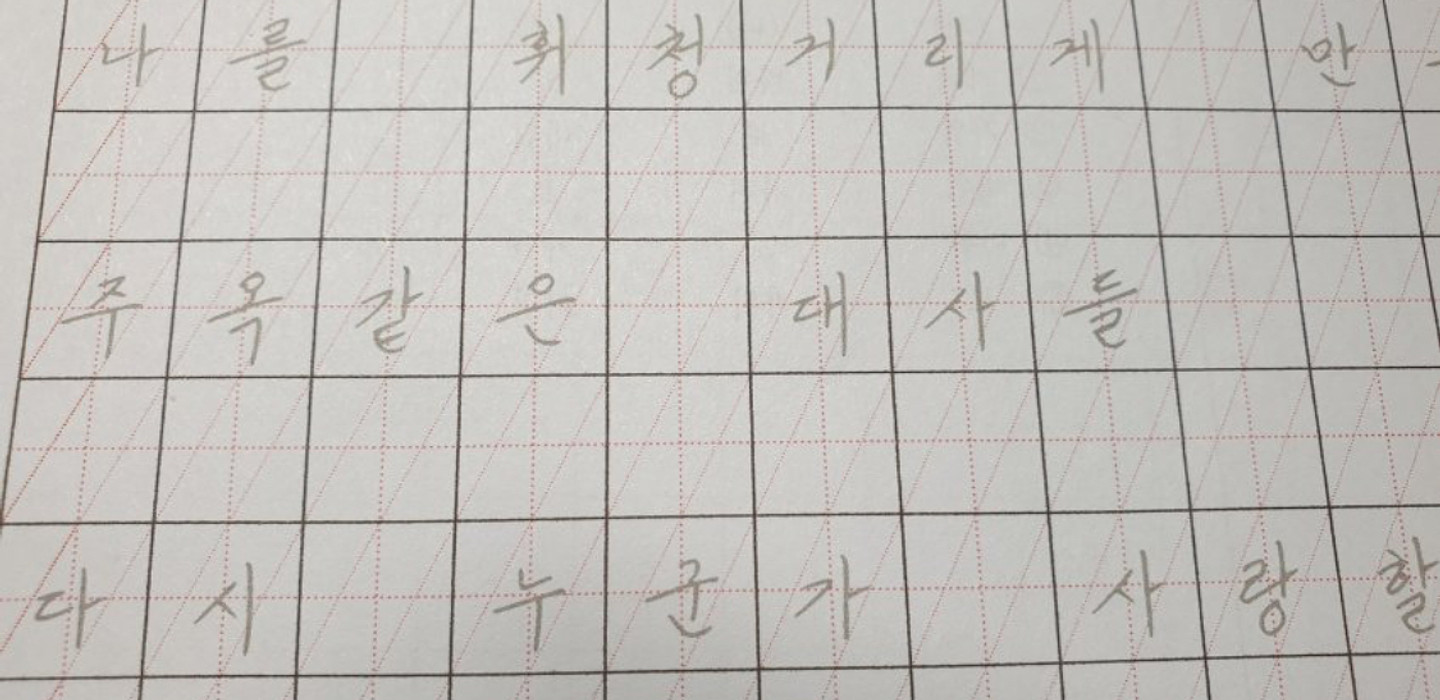 나를 휘청거리게 만
주옥같은 대사들
다시 누군가 사랑할